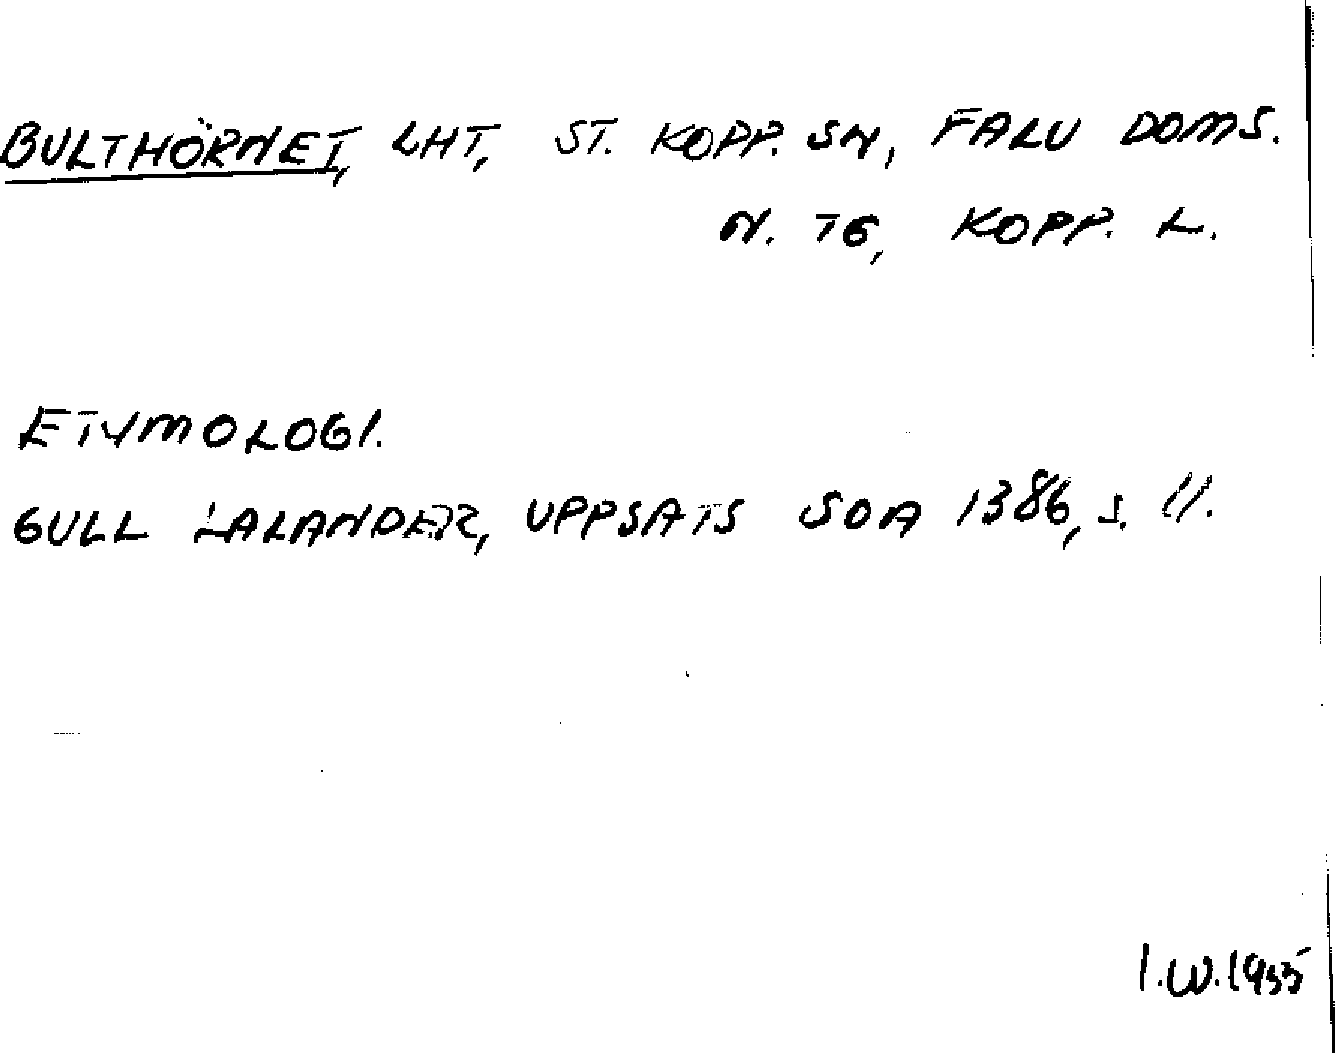 BULTHÖRNET, LHT, ST. KOPP. SN, FALU DOMS.
N. TG, KOPP. L.
ETYMOLOGI.
GULL LALANDER, UPPSATS SOA 1386, S. 11.
I.W. 1955